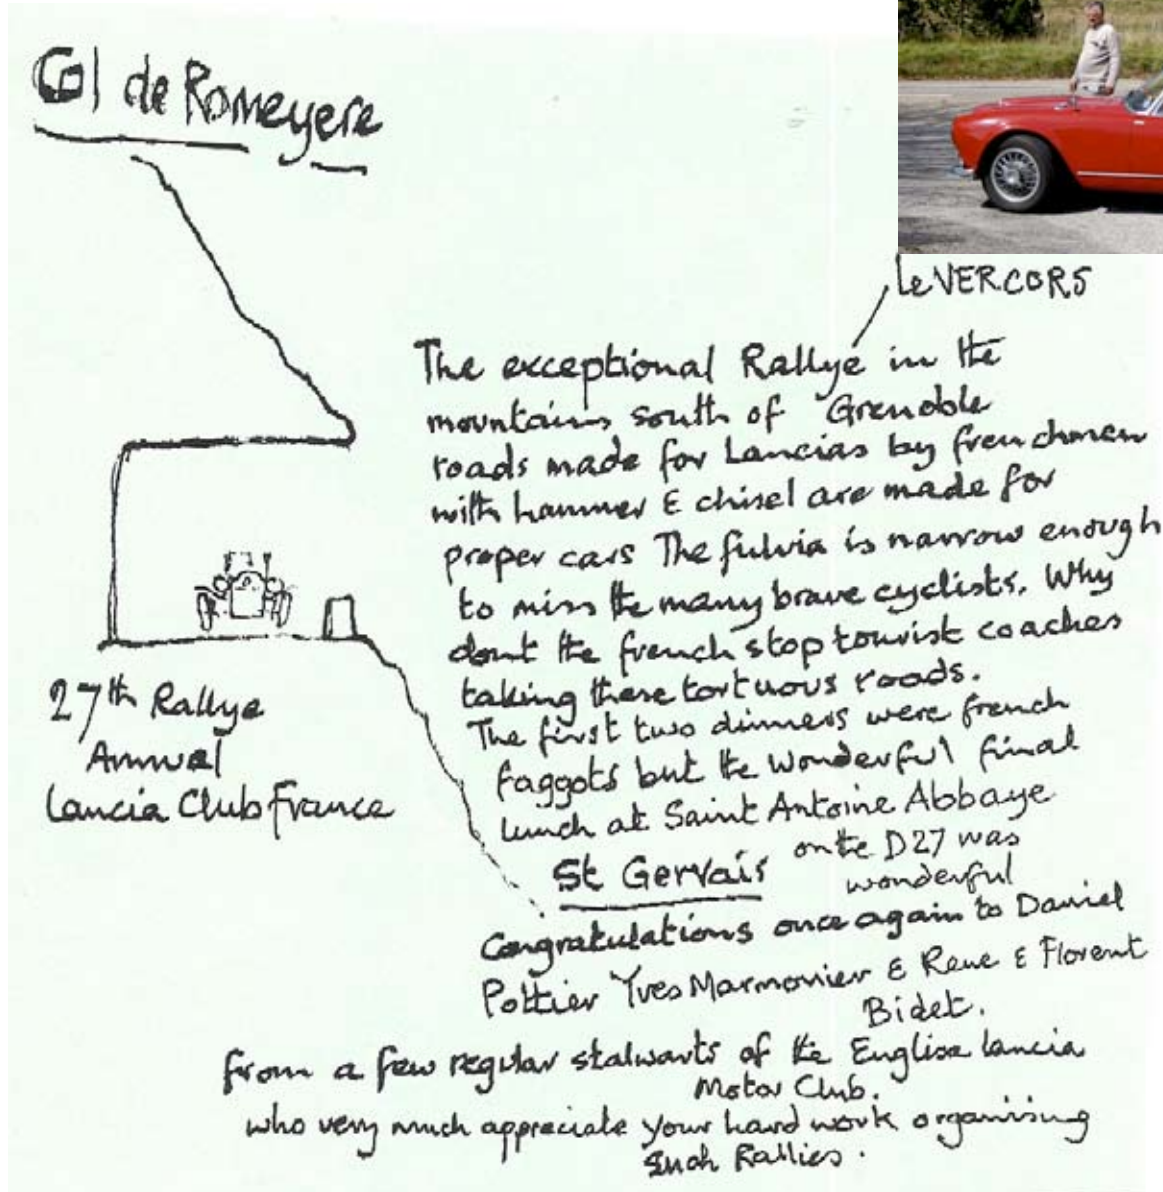 Col de Romeyere
le VERCORS
The exceptional Rallye in the
mountains south of Grenoble
roads made for Lancias by frenchmen
with hammer & chisel are made for
proper cars The fulvia is narrow enough
to miss the many brave cyclists. Why
dont the french stop tourist coaches
taking these tortuous roads.
27th Rallye
Annual
Lancia Club France
The first two dinners were french
faggots but the wonderful final
lunch at Saint Antoine Abbaye
on the D27 was
wonderful
St Gervais
Congratulations once again to Daniel
Pottier Yves Marmonier & Rene & Florent
Bidet.
from a few regular stalwarts of the English Lancia
Motor Club.
who very much appreciate your hard work organising
such Rallies.